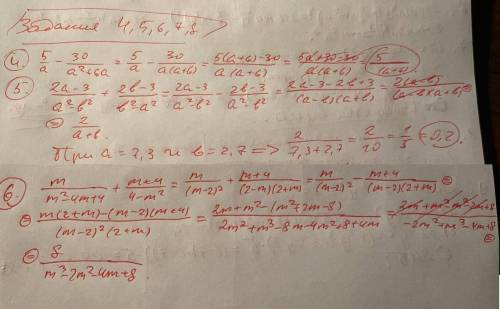 Задания 4, 5, 6, 7, 8
4. 5/a - 30/(a²+6a) = 5/a - 30/(a(a+6)) = (5(a+6)-30)/(a(a+6)) = (5a+30-30)/(a(a+6)) = 5/(a+6)
5. (2a-3)/(a²-b²) + (2b-3)/(b²-a²) = (2a-3)/(a²-b²) - (2b-3)/(a²-b²) = (2a-3-2b+3)/((a-b)(a+b)) = 2(a-b)/((a-b)(a+b)) =
= 2/(a+b).
При a = 7,3 и b = 2,7 => 2/(7,3+2,7) = 2/10 = 1/5 = 0,2.
6. m/(m²-4m+4) + (m+4)/(4-m²) = m/(m-2)² + (m+4)/((2-m)(2+m)) = m/(m-2)² - (m+4)/((m-2)(2+m)) =
= (m(2+m)-(m-2)(m+4))/((m-2)²(2+m)) = (2m+m²-(m²+2m-8))/(2m²+m³-8m-4m²+8+4m) = (2m+m²-m²-2m+8)/(-2m²+m³-4m+8) =
= 8/(m³-2m²-4m+8)